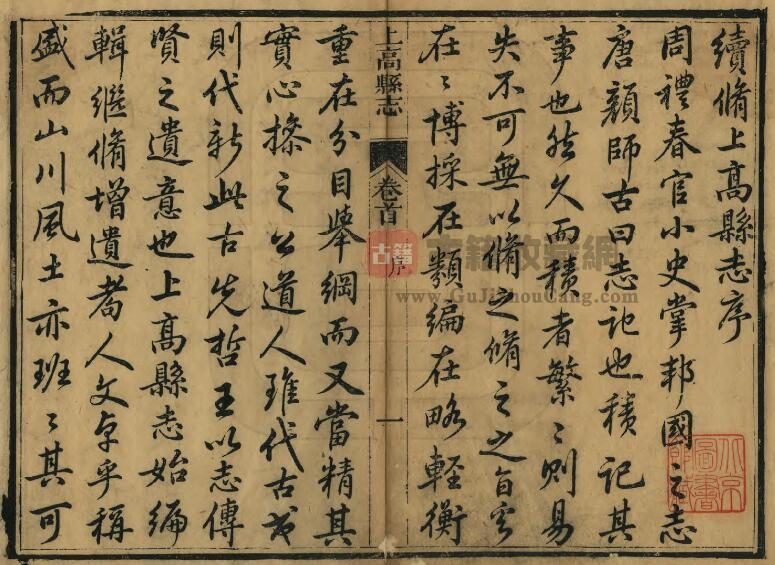 續脩上髙縣志序
周禮春官小史掌邦國之志
唐顔師古曰志記也積記其
事也然久而積者繁〻則易
失不可無以脩之脩之之旨
在〻博採在類編在略輕衡
上高縣志
卷首
序
一
重在分目舉綱而又當精其
實心操之公道人雖代古
則代新此古先哲王以志傳
賢之遺意也上髙縣志始編
輯繼脩增遺耆人文卓乎稱
盛而山川風土亦班〻其可
古籍
古籍收藏網
www.GuJiShouCang.com